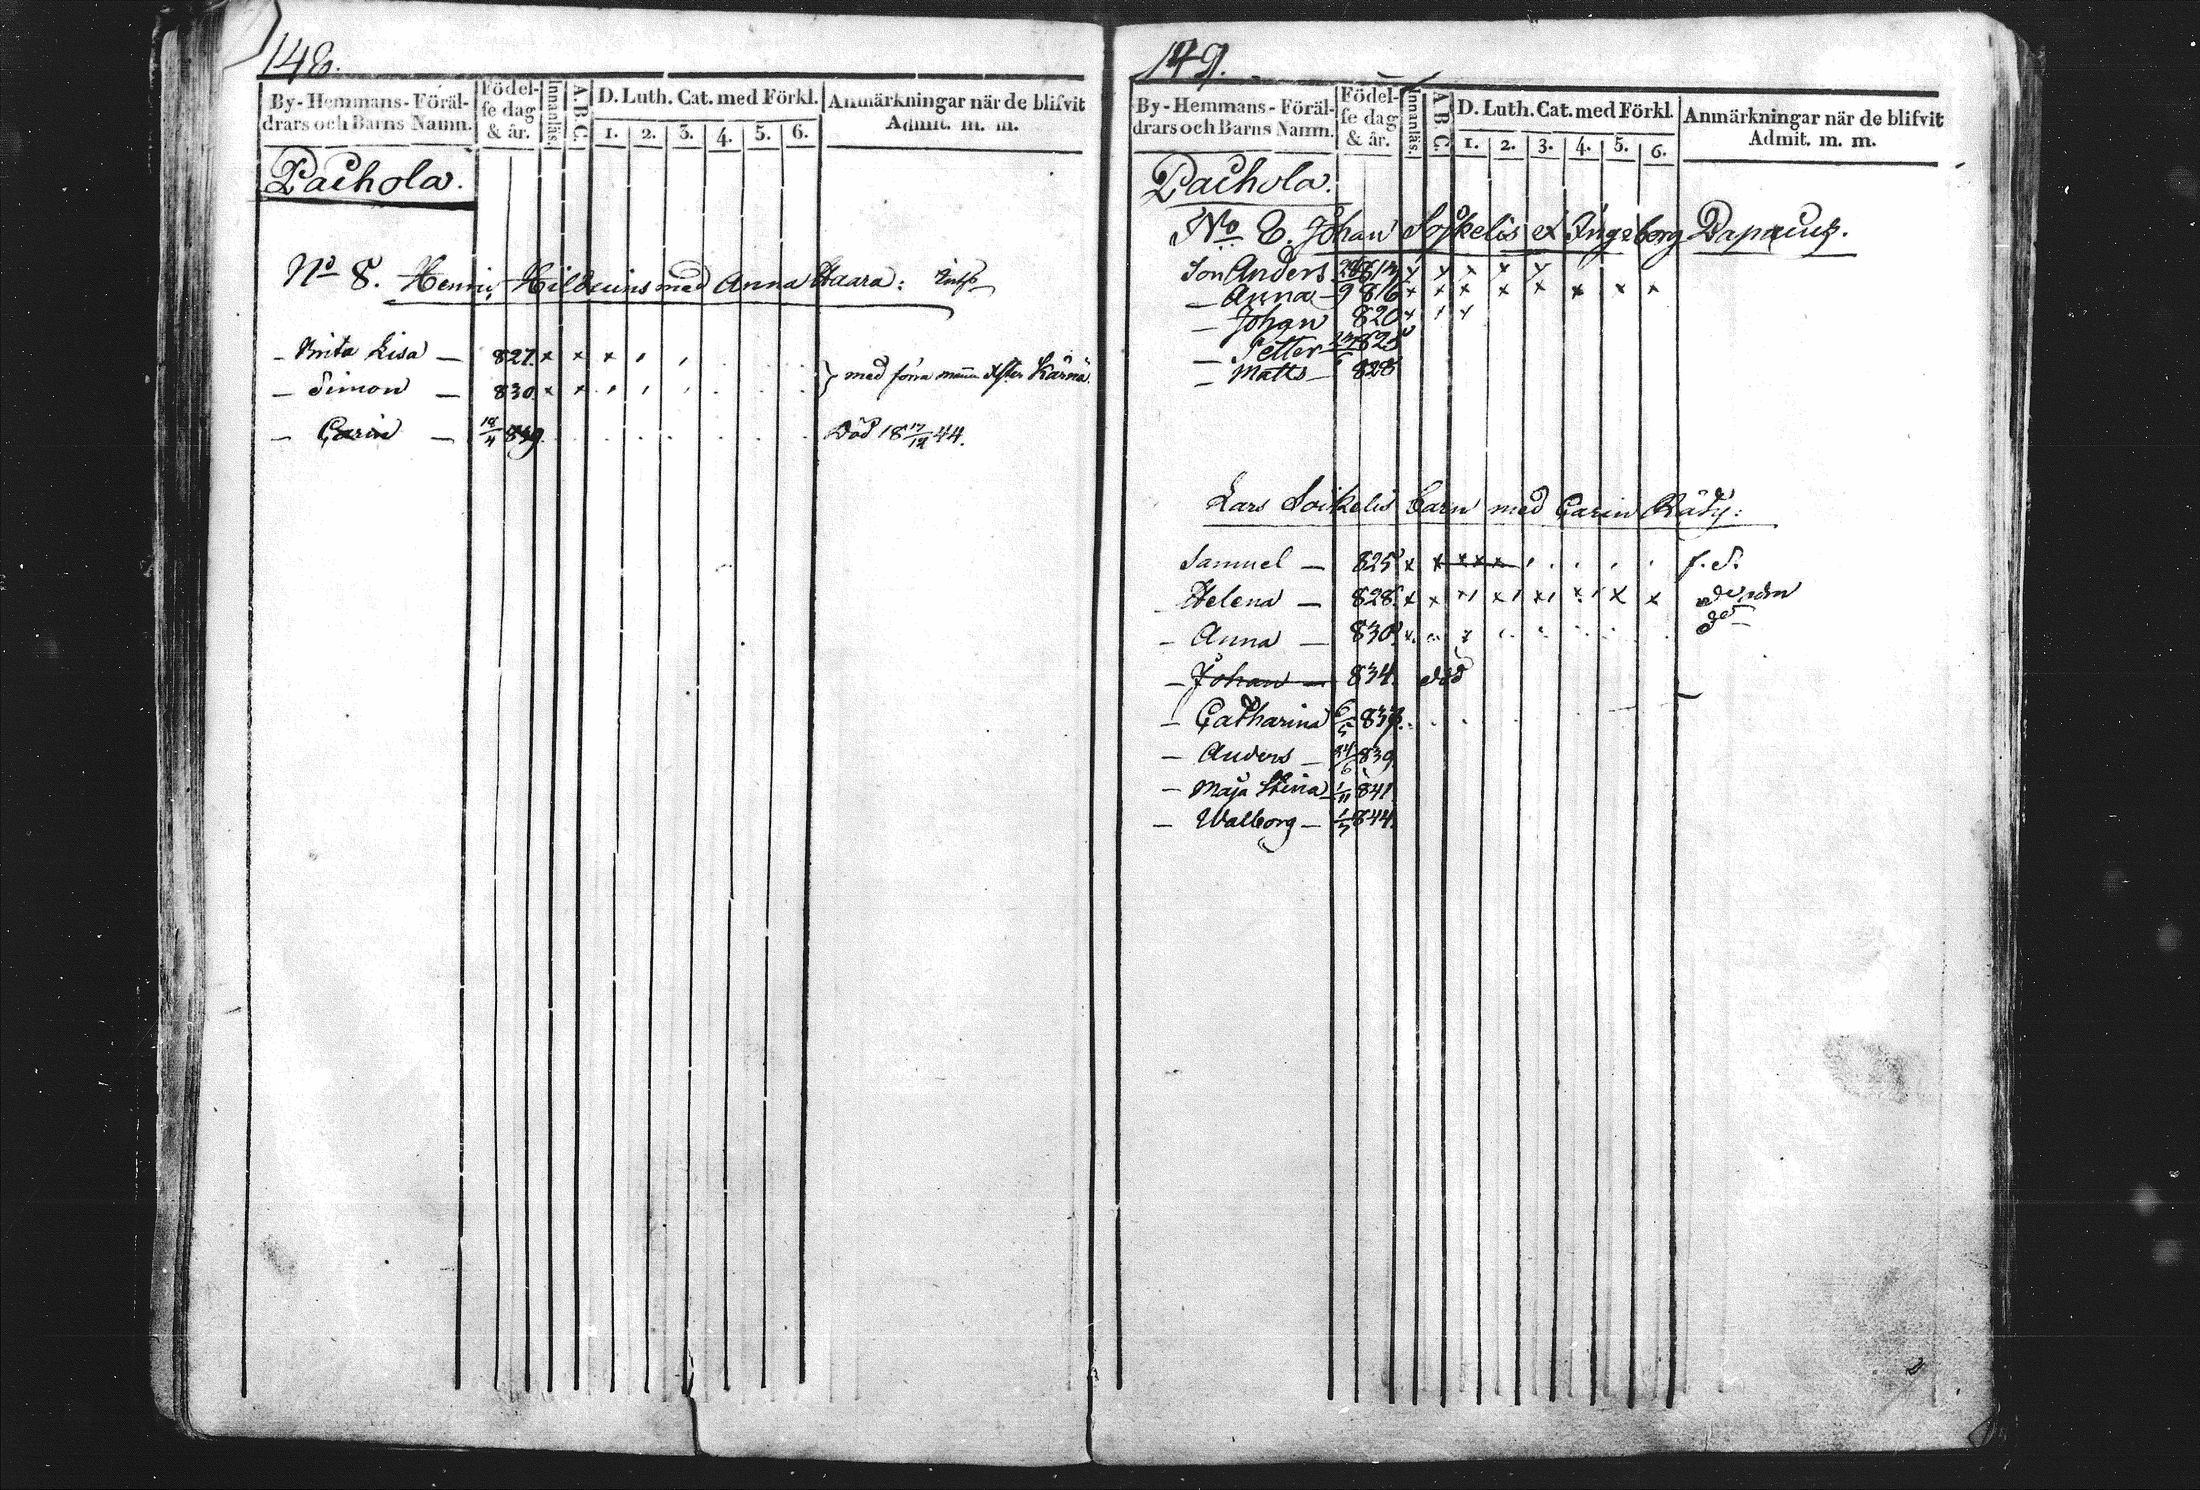 148.
By-Hemmans-Föräl-
drars och Barns Namn.
Födel-
se dag
& år.
Innanläs.
A.B.C.
D. Luth. Cat. med Förkl.
1. 2. 3. 4. 5. 6.
Anmärkningar när de blifvit
Admit. m. m.
Pachola.
No 8. Henric Hildeuins med Anna Haara:
- Brita Lisa - 827. x x x
- Simon - 830. x x
} med förra mannen After Kärnä.
- Carin - 18/4 839.
Död 18 17/12 44.
149.
By-Hemmans-Föräl-
drars och Barns Namn.
Födel-
se dag
& år.
Innanläs.
A.B.C.
D. Luth. Cat. med Förkl.
1. 2. 3. 4. 5. 6.
Anmärkningar när de blifvit
Admit. m. m.
Pachola.
No 8. Johan Soikelis et Ingeborg
Son Anders x x x x x
- Anna - 9 816 x x x x x x x x
- Johan 820
- Petter 825
- Matts - 828
Lars Soikelis barn med Carin Räty:
Samuel - 825 x x x x x
- Helena - 828. x x x x x x x x
- Anna - 830. x
- Johan - 834. död
- Catharina 6/5
- Anders - 24/6 839
- Maja Stina 1/11 841.
- Walborg - 844.